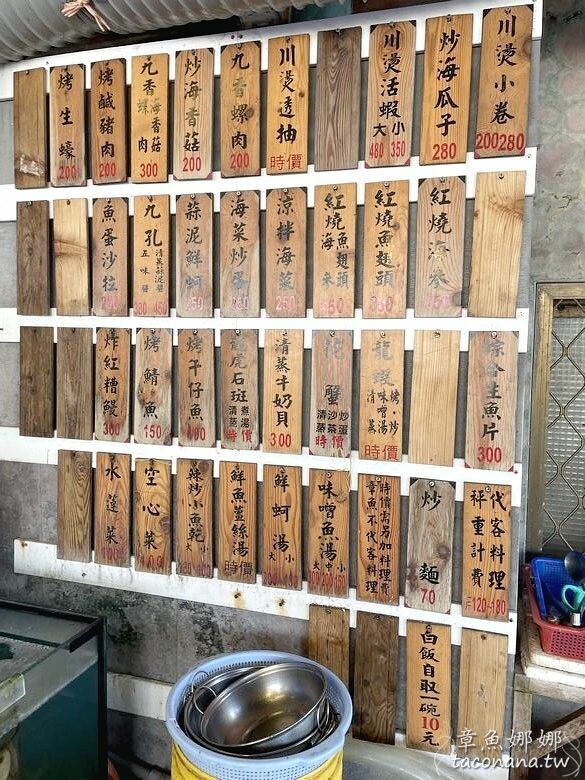 川燙小卷 200 280
炒海瓜子 280
川燙活蝦 大 小 460 350
川燙透抽 時價
九香螺肉 200
炒海香菇 200
九香螺肉 海香菇 300
烤鹹豬肉 200
烤生蠔 200
紅燒海參
紅燒魚翅頭
紅燒海參 魚翅頭
涼拌海菜 250
海菜炒蛋
蒜泥鮮蚵
九孔 五味醬 清蒸蒜泥醬
魚蛋沙拉
綜合生魚片 300
龍蝦 清蒸 味噌湯 烤·炒 時價
花蟹 清蒸 沙茶 炒蛋 時價
清蒸牛奶貝 300
龍虎石斑 清蒸 煮湯 時價
烤午仔魚
烤鯖魚 150
炸紅糟鰻 300
代客料理 秤重計費 一斤120-180
炒麵 70
時價需另加料理費 章魚不代客料理
味噌魚湯 大 中 小
鮮蚵湯 大 小
鮮魚薑絲湯 時價
辣炒小魚乾 大 小
空心菜 100
水蓮菜 100
白飯自取一碗10元
章魚娜娜
taconana.tw